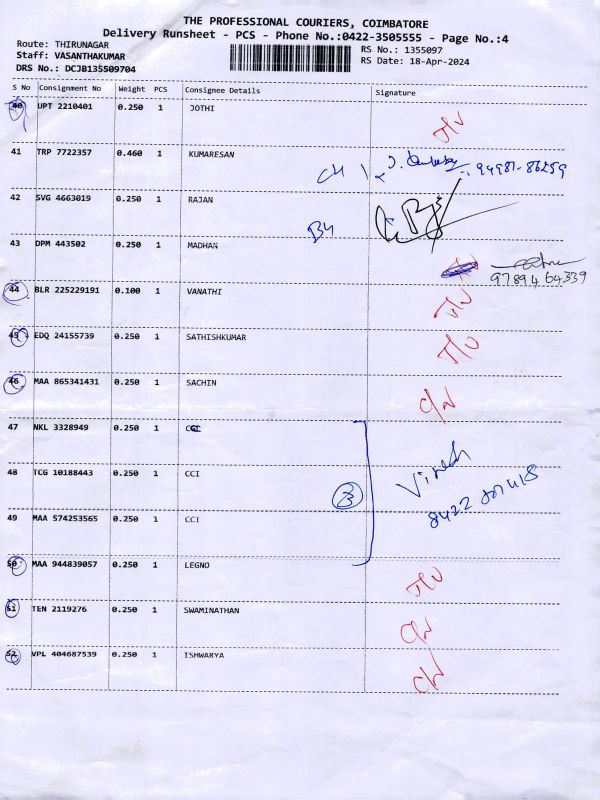 THE PROFESSIONAL COURIERS, COIMBATORE
Delivery Runsheet - PCS - Phone No.:0422-3505555 - Page No.:4
Route: THIRUNAGAR
Staff: VASANTHAKUMAR
DRS No.: DCJB135509704
RS No.: 1355097
RS Date: 18-Apr-2024
S No Consignment No Weight PCS Consignee Details Signature
40 UPT 2210401 0.250 1 JOTHI
41 TRP 7722357 0.460 1 KUMARESAN 94981-86259
42 SVG 4663019 0.250 1 RAJAN
43 DPM 443502 0.250 1 MADHAN
9789464339
44 BLR 225229191 0.100 1 VANATHI
45 EDQ 24155739 0.250 1 SATHISHKUMAR
46 MAA 865341431 0.250 1 SACHIN
47 NKL 3328949 0.250 1 CCI
48 TCG 10188443 0.250 1 CCI
3
49 MAA 574253565 0.250 1 CCI
50 MAA 944839057 0.250 1 LEGNO
51 TEN 2119276 0.250 1 SWAMINATHAN
52 VPL 404687539 0.250 1 ISHWARYA